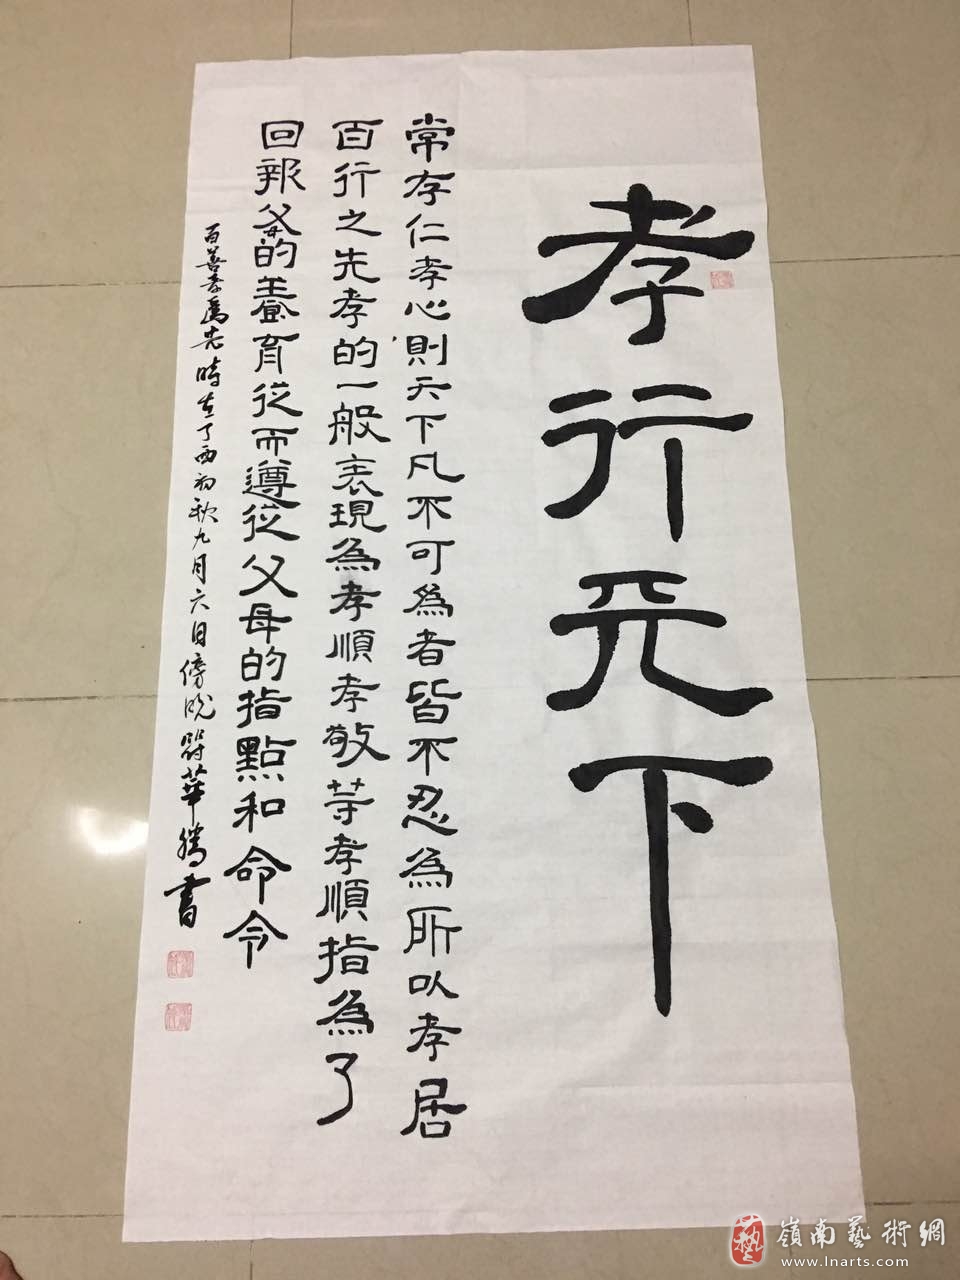 孝行天下
常存仁孝心則天下凡不可為者皆不忍為所以孝居
百行之先孝的一般表現為孝順孝敬等孝順指為了
回報父母的養育從而遵從父母的指點和命令
百善孝為先時在丁酉初秋九月六日傍晚 華勝書
嶺南藝術網
www.lnarts.com